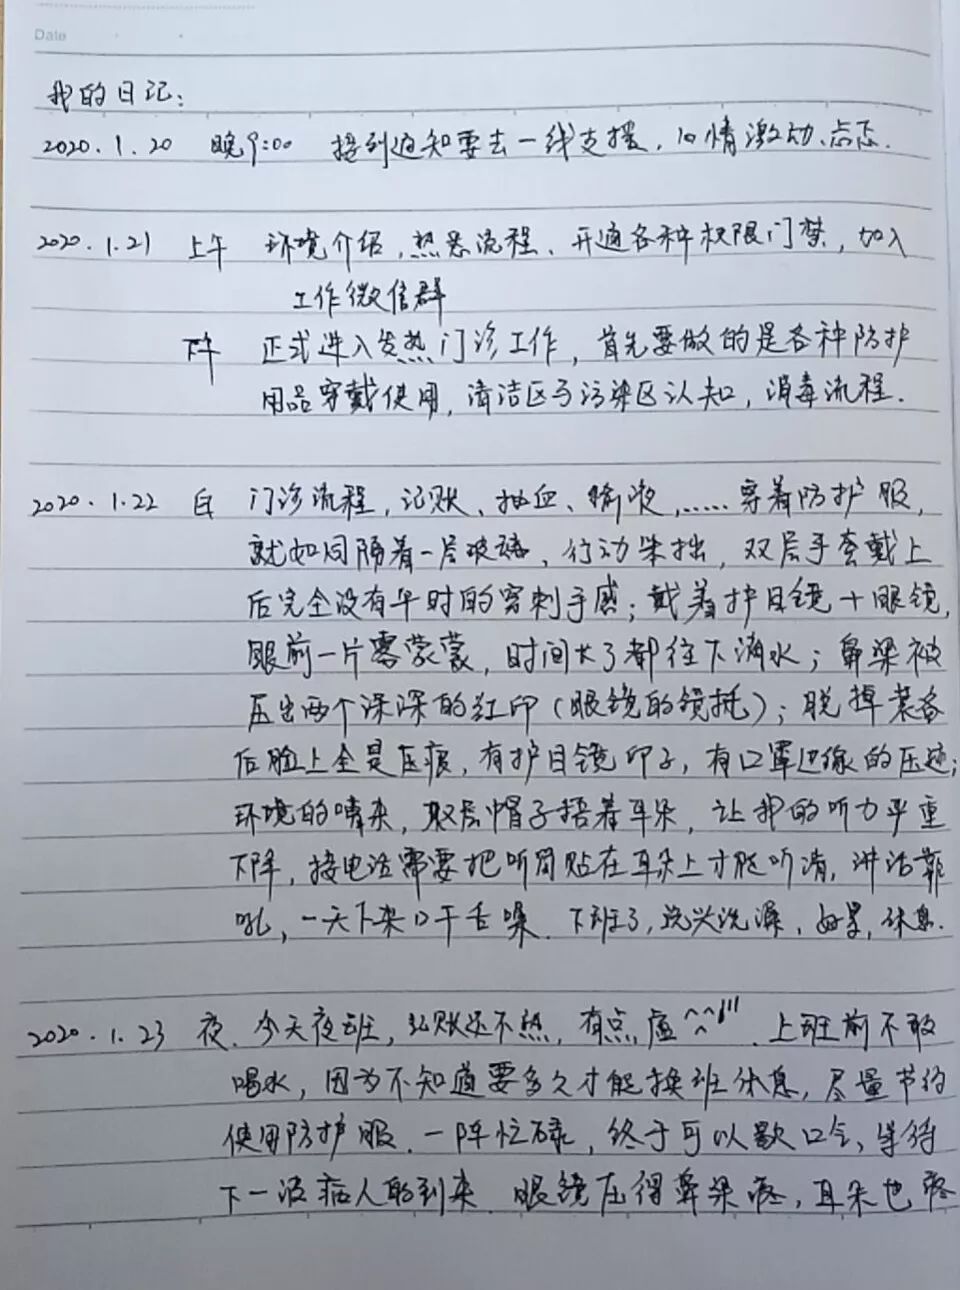 Date
我的日记：
2020.1.20 晚9:00 接到通知要去一线支援，心情激动、忐忑.
2020.1.21 上午 环境介绍，熟悉流程、开通各种权限门禁，加入
工作微信群
下午 正式进入发热门诊工作，首先要做的是各种防护
用品穿戴使用，清洁区与污染区认知，消毒流程.
2020.1.22 白 门诊流程，记账、抽血、输液，……穿着防护服，
就如同隔着一层玻璃、行动笨拙，双层手套戴上
后完全没有平时的穿刺手感；戴着护目镜+眼镜，
眼前一片雾蒙蒙，时间长了都往下滴水；鼻梁被
压出两个深深的红印（眼镜的镜托）；脱掉装备
后脸上全是压痕，有护目镜印子，有口罩边缘的压迹；
环境的嘈杂，双层帽子捂着耳朵，让我的听力严重
下降，接电话需要把听筒贴在耳朵上才能听清，讲话靠
吼，一天下来口干舌噪. 下班了，洗头洗澡，好累，休息.
2020.1.23 夜. 今天夜班，记账还不熟，有点虚^^''' 上班前不敢
喝水，因为不知道要多久才能换班休息，尽量节约
使用防护服. 一阵忙碌，终于可以歇口气，等待
下一波病人的到来. 眼镜压得鼻梁疼，耳朵也疼